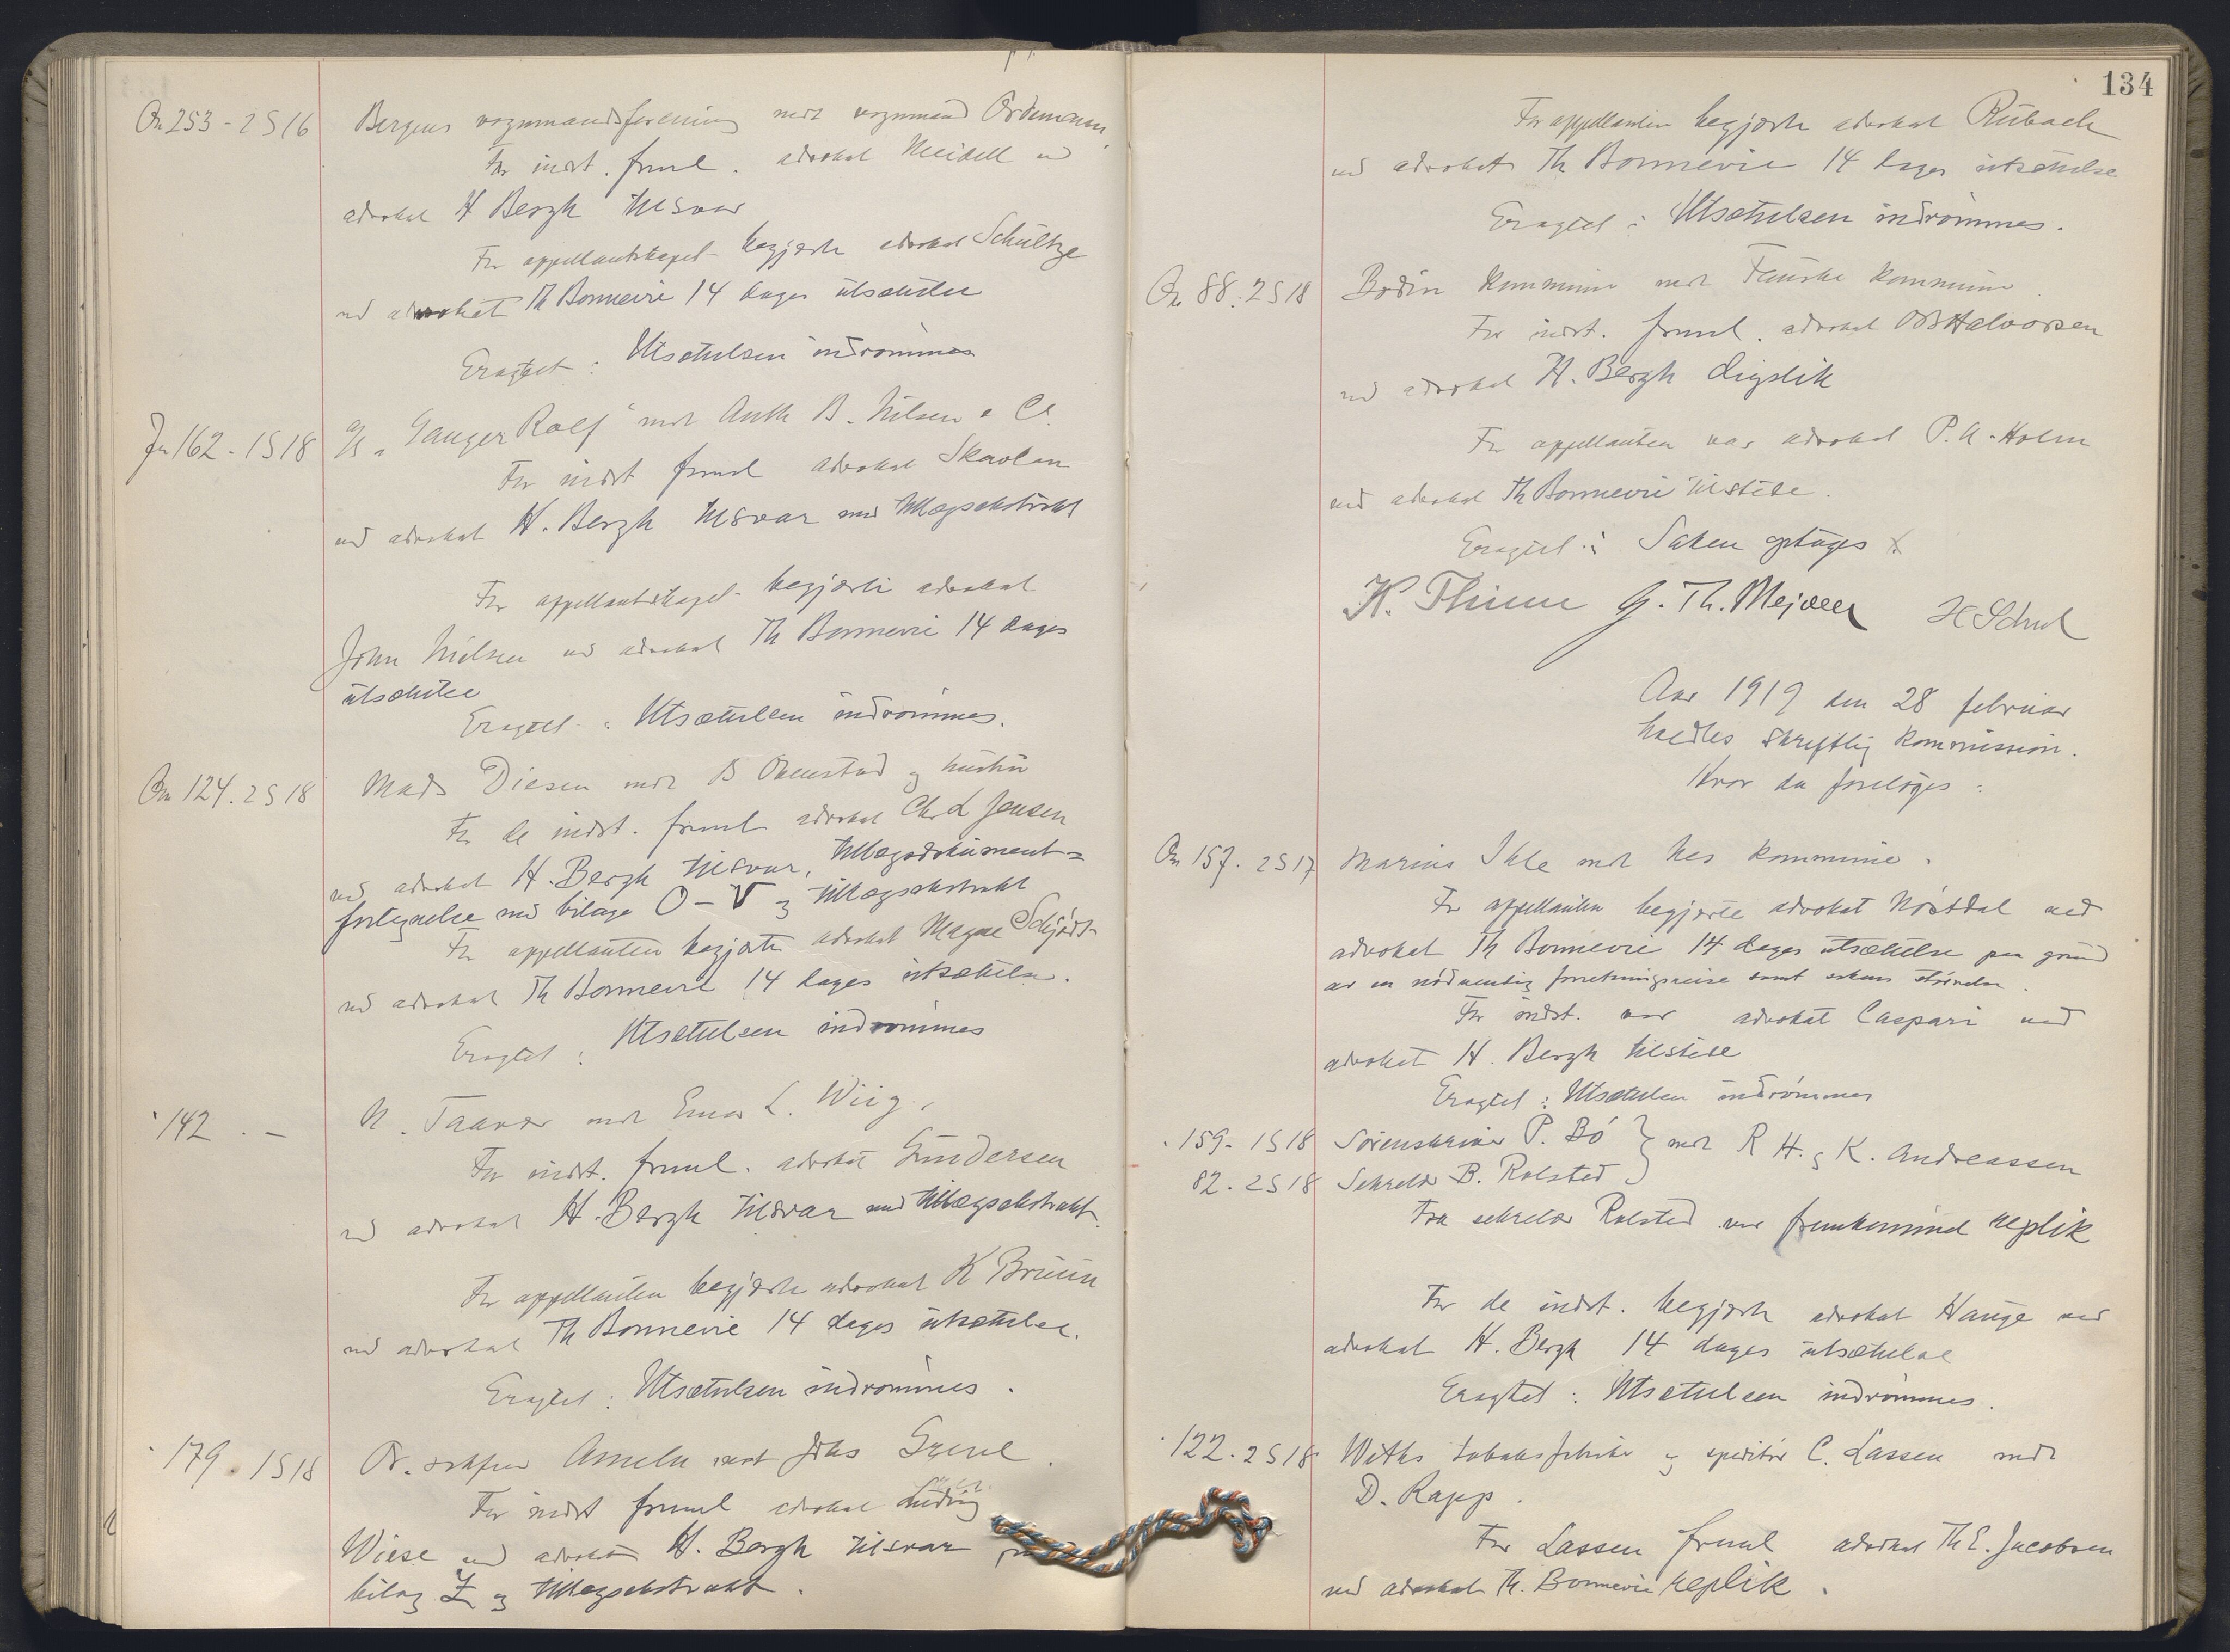 On 253 - 2 S 16 Bergens vognmandsforening mot vognmand Ordemann.
For indst. freml. advokat Meidell ved
advokat H Bergh tilsvar
For appellantskapet begjærte advokat Schultze
ved advokat Th Bonnevie 14 dages utsættelse
Eragtet : Utsættelsen indrømmes
Fr 162 - 1 S 18 A/S "Ganger Rolf" mot Anth B. Nilsen & Co.
For indst freml advokat Skavlan
ved advokat H. Bergh tilsvar med tillægsekstrakt
For appellantskapet begjærte advokat
John Nielsen ved advokat Th Bonnevie 14 dages
utsættelse
Eragtet : Utsættelsen indrømmes.
On 124. 2 S 18 Mads Diesen mot B Ovenstad og hustru
For de indst. freml advokat Chr L Jensen
ved advokat H. Bergh tilsvar, tillægsdokument-
fortegnelse med bilage O - V og tillægsekstrakt
For appellanten begjærte advokat Magne Schjødt
ved advokat Th Bonnevie 14 dages utsættelse.
Eragtet : Utsættelsen indrømmes
" 142 . - N. Taarer mot Einar L. Wiig.
For indst. freml. advokat Gundersen
ved advokat H. Bergh tilsvar med tillægsekstrakt.
For appellanten begjærte advokat K Bruun
ved advokat Th Bonnevie 14 dages utsættelse.
Eragtet : Utsættelsen indrømmes.
" 179. 1 S 18 O.r. sakfører Ameln mot Johs Grene.
For indst freml advokat Ludvig
Wiese ved advokat H. Bergh tilsvar
bilag Z og tillægsekstrakt.
134
For appellanten begjærte advokat Rubach
ved advokat Th Bonnevie 14 dages utsættelse
Eragtet : Utsættelsen indrømmes.
On 88. 2 S 18 Bodin kommune mot Fauske kommune
For indst. freml. advokat OB Halvorsen
ved advokat H. Bergh duplik
For appellanten var advokat P. A. Holm
ved advokat Th Bonnevie tilstede.
Eragtet : Saken optages
K. Thinn G. Th. Mejdell
Aar 1919 den 28 februar
holdtes skriftlig kommission.
Hvor da foretoges :
On 157. 2 S 17 Marius Ihle mot Nes kommune.
For appellanten begjærte advokat Nøstdal ved
advokat Th Bonnevie 14 dages utsættelse paa grund
av en nødvendig forretningsreise samt sakens størrelse.
For indst. var advokat Caspari ved
advokat H. Bergh tilstede
Eragtet : Utsættelsen indrømmes
" 159 - 1 S 18 Sorenskriver P. Bø } mot R H. & K. Andreassen
82. 2 S 18 Sekretær B. Rolsted }
Fra sekretær Rolsted var fremkommet replik
For de indst. begjærte advokat Hauge ved
advokat H. Bergh 14 dages utsættelse
Eragtet : Utsættelsen indrømmes.
" 122. 2 S 18 Witths tobaksfabrik og speditør C. Lassen mot
D. Rapp.
For Lassen freml advokat Th E. Jacobsen
ved advokat Th. Bonnevie replik.